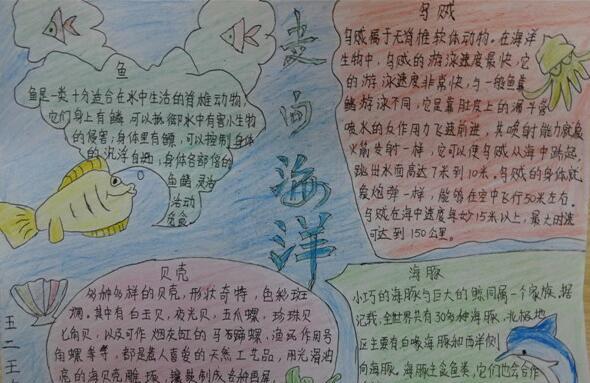 走向海洋
鱼
鱼是一类十分适合在水中生活的脊椎动物,
它们身上有鳞,可以抵御水中有害小生物
的侵害;身体里有鳔,可以控制身体
的沉浮自由;身体各部位的
鱼鳍灵活
活动
乌贼
乌贼属于无脊椎软体动物。在海洋
生物中,乌贼的游泳速度最快,它
的游泳速度非常快,与一般鱼靠
鳍游泳不同,它是靠肚皮上的漏斗管
喷水的反作用力飞速前进,其喷射能力就象
火箭发射一样,它可以使乌贼从海中跳起,
跳出水面高达7米到10米。乌贼的身体就
象炮弹一样,能够在空中飞行50米左右。
乌贼在海中速度每秒15米以上,最大时速
可达到150公里。
贝壳
多种多样的贝壳,形状奇特,色彩斑
斓,其中有白玉贝,夜光贝,五爪螺,珍珠贝
七角贝,以及可作烟灰缸的马蹄螺,渔民作用号
角螺等等,都是惹人喜爱的天然工艺品,用光滑油
亮的海贝壳雕琢,镶嵌制成各种画屏,
海豚
小巧的海豚与巨大的鲸同属一个家族,据
记载,全世界共有30多种海豚,北极地
区主要有白喙海豚和西洋侧
向海豚。海豚主食鱼类,它们也会合作
五二王